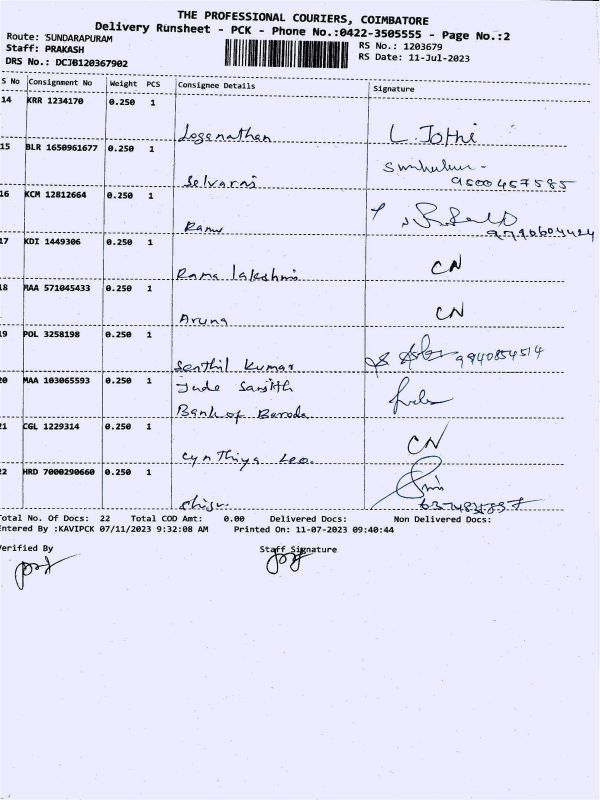 THE PROFESSIONAL COURIERS, COIMBATORE
Delivery Runsheet - PCK - Phone No.:0422-3505555 - Page No.:2
Route: SUNDARAPURAM
RS No.: 1203679
Staff: PRAKASH
RS Date: 11-Jul-2023
DRS No.: DCJB120367902
S No Consignment No Weight PCS Consignee Details Signature
14 KRR 1234170 0.250 1
Loganathan L. Jothi
15 BLR 1650961677 0.250 1
Selvaraj 9500457585
16 KCM 12812664 0.250 1
Ramu
17 KDI 1449306 0.250 1
Rama lakshmi CN
18 MAA 571045433 0.250 1
Aruna CN
19 POL 3258198 0.250 1
Senthil Kumar 9940854514
20 MAA 103065593 0.250 1 Jude
Bank of Baroda
21 CGL 1229314 0.250 1
Cynthiya Leo. CN
22 HRD 7000290660 0.250 1
Total No. Of Docs: 22 Total COD Amt: 0.00 Delivered Docs: Non Delivered Docs:
Entered By :KAVIPCK 07/11/2023 9:32:08 AM Printed On: 11-07-2023 09:40:44
Verified By Staff Signature